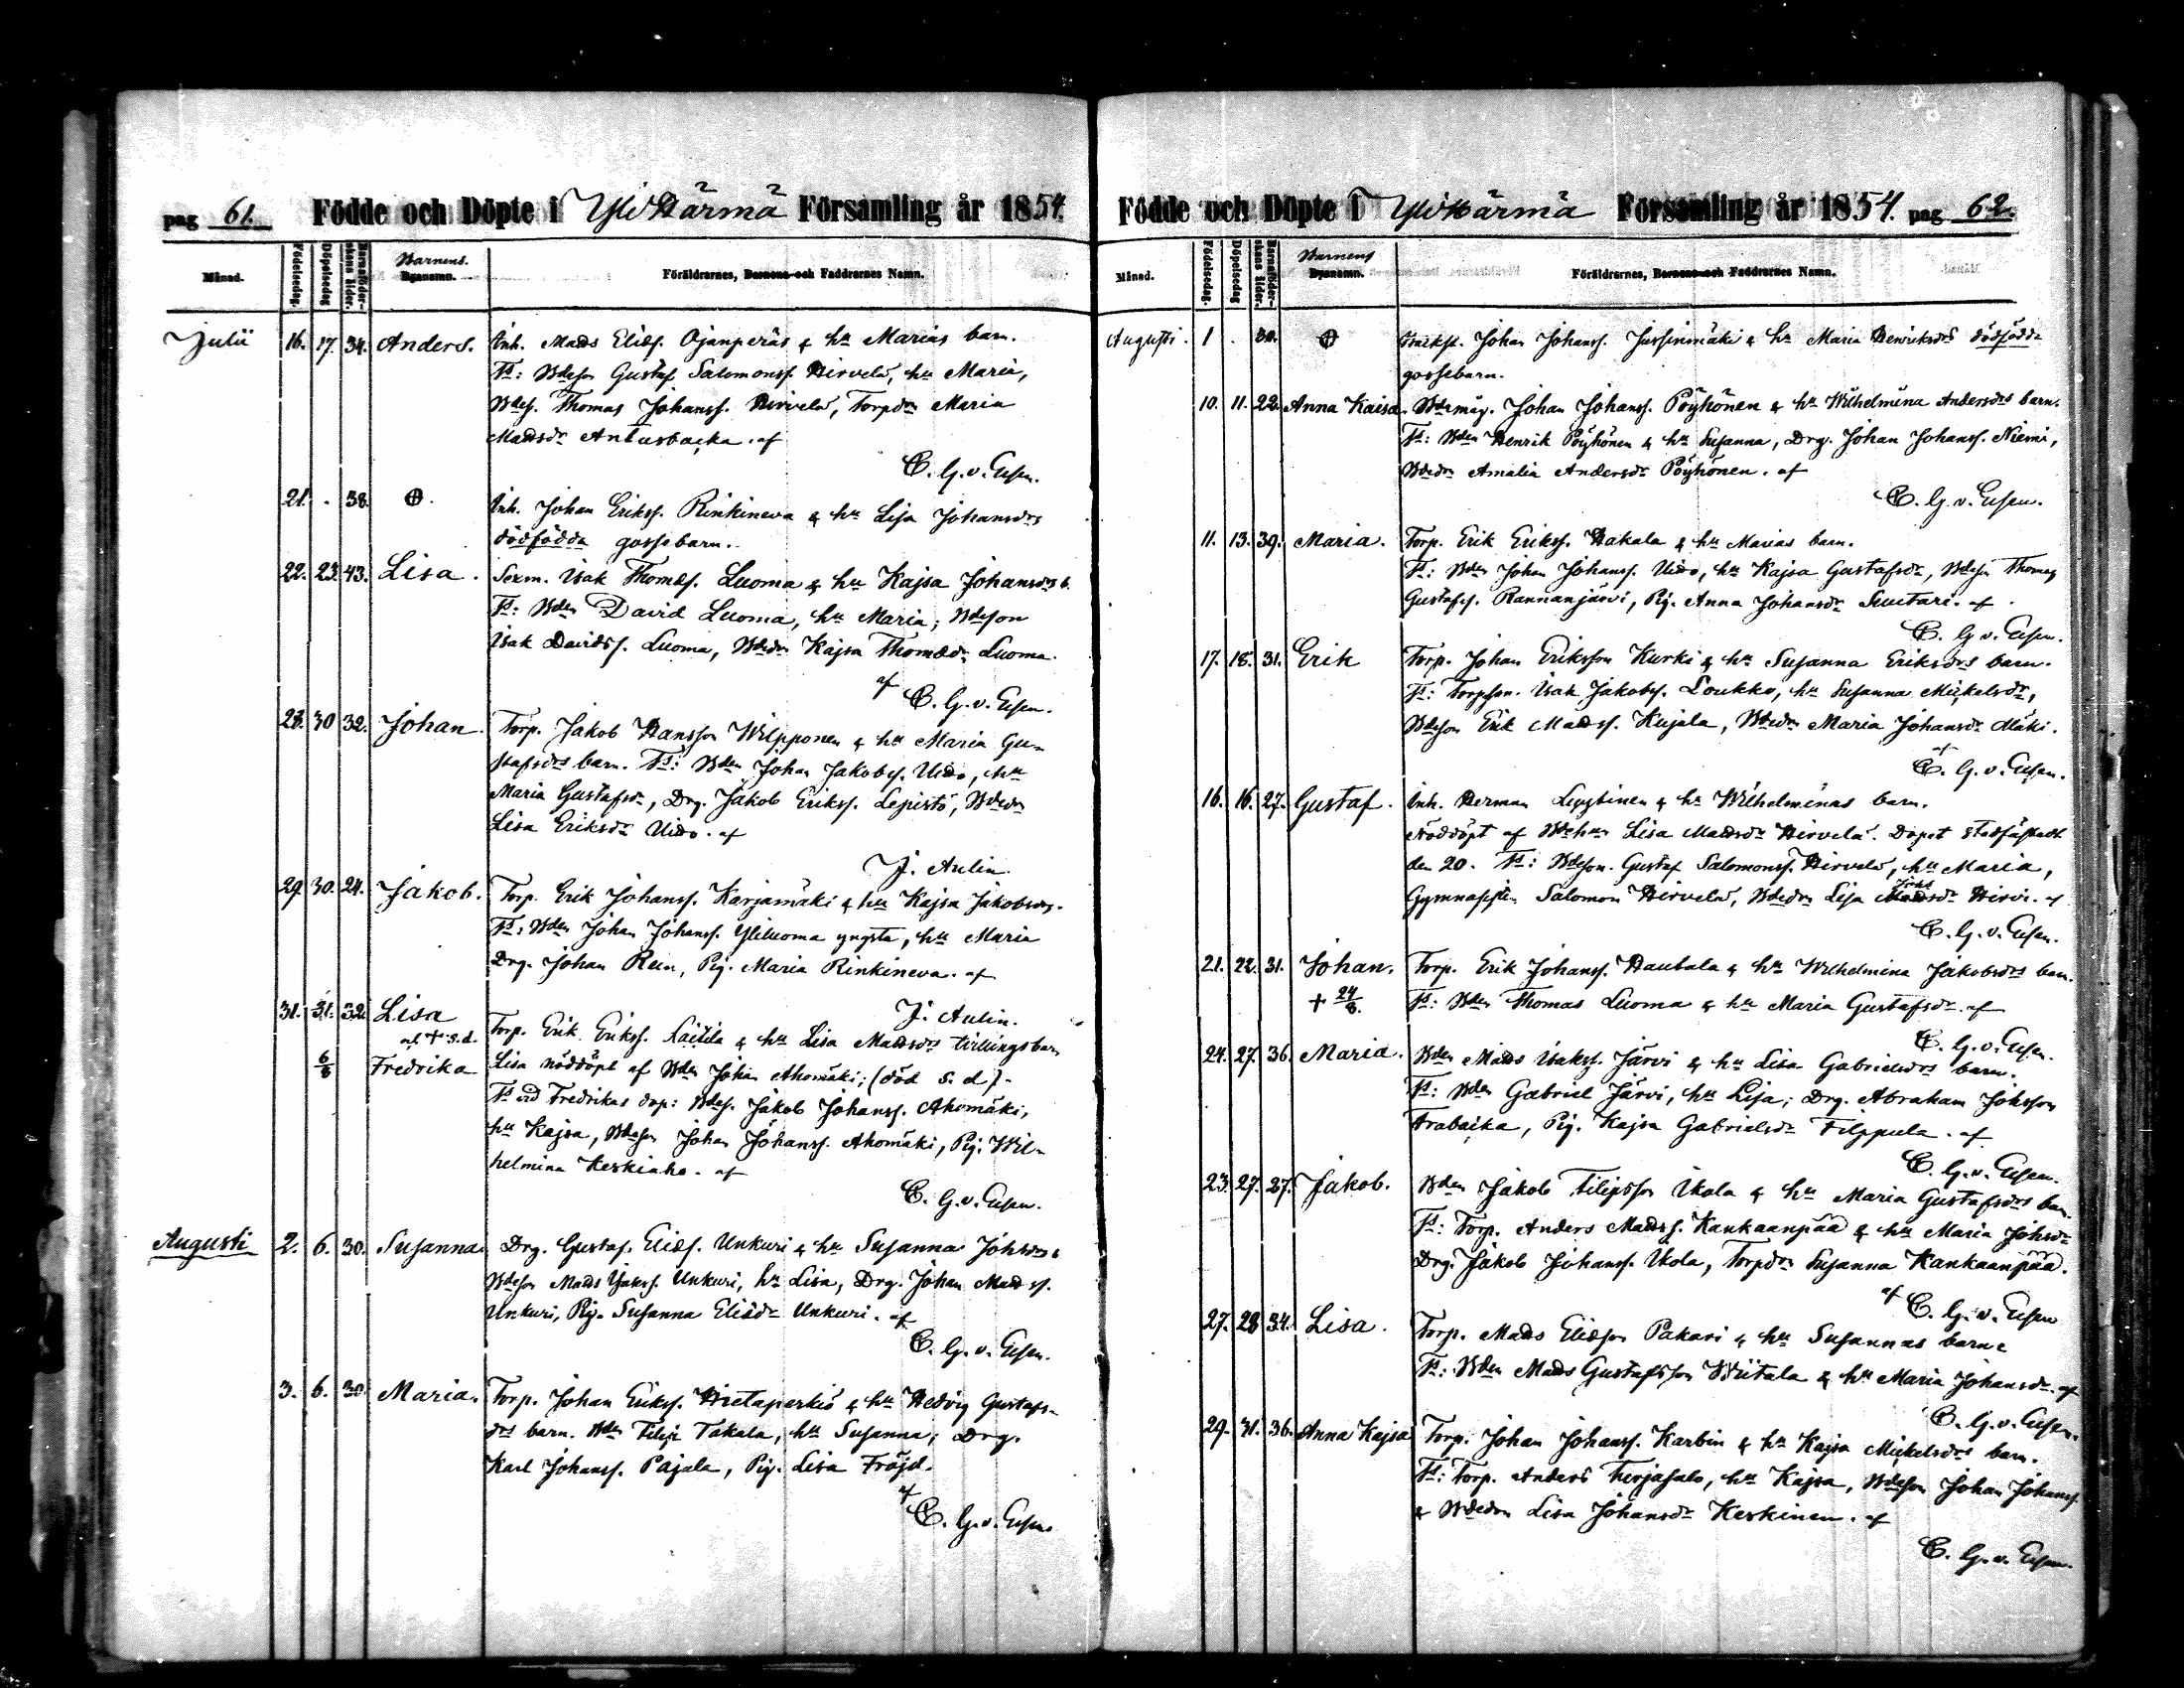 pag 61. Födde och Döpte i YliHärmä Församling år 1854.
Månad. Födelsedag. Döpelsedag Barnaföderskans ålder. Barnens Byanamn. Föräldrarnes, Barnens och Faddrarnes Namn.
Julii 16. 17. 34. Anders. Inh. Mads Eliæs. Ojanperäs & hu Marias barn.
Fs: Bdeson Gustaf Salomonss. Hirvelä, hu Maria,
Bdes. Thomas Johanss. Hirvelä, Torpdr Maria
Madsdr Antusbacka. af
C. G. v. Essen.
21. - 38. Inh. Johan Erikss. Rinkineva & hu Lisa Johansdrs
dödfödda gossebarn.
22. 23. 43. Lisa. Sexm. Isak Thomæs. Luoma & hu Kajsa Johansdrs b.
Fs: Bden David Luoma, hu Maria; Bdeson
Isak Davidss. Luoma, Bdedr Kajsa Thomædr Luoma.
af C. G. v. Essen.
28. 30 32. Johan. Torp. Jakob Hansson Wilpponen & hu Maria Gu-
stafsdrs barn. Fs: Bden Johan Jakobss. Uido, hu
Maria Gustafsdr, Drg. Jakob Erikss. Lepistö, Bdedr
Lisa Eriksdr Uido. af
J. Aulin.
29. 30. 24. Jakob. Torp. Erik Johanss. Karjamäki & hu Kajsa Jakobsdrs.
Fs: Bden Johan Johanss. Yliluoma yngsta, hu Maria
Drg. Johan Rein, Pig. Maria Rinkineva. af
J. Aulin.
31. 31. 32. Lisa Torp. Erik Erikss. Laitila & hu Lisa Madsdrs tvillingsbarn
† s.d.
6/8 Fredrika Lisa nöddöpt af Bden Johan Ahomäki; (död s. d).
Fs vid Fredrikas dop: Bdes. Jakob Johanss. Ahomäki,
hu Kajsa, Bdeson Johan Johanss. Ahomäki, Pig. Wil-
helmina Keskiaho. af
C. G. v. Essen.
Augusti 2. 6. 30. Susanna. Drg. Gustaf Eliæs. Unkuri & hu Susanna Johsdrs
Bdeson Mads Isakss. Unkuri, hu Lisa, Drg. Johan Madss.
Unkuri, Pig. Susanna Eliædr Unkuri. af
C. G. v. Essen.
3. 6. 30. Maria. Torp. Johan Erikss. Hietaperkiö & hu Hedvig Gustafs-
drs barn. Bden Filip Takala, hu Susanna; Drg.
Karl Johanss. Pajala, Pig. Lisa Fröjd.
af C. G. v. Essen
Födde och Döpte i YliHärmä Församling år 1854. pag 62.
Månad. Födelsedag. Döpelsedag Barnaföderskans ålder. Barnens Byanamn. Föräldrarnes, Barnens och Faddrarnes Namn.
Augusti. 1 . 30. Johan Johanss. Jussinmäki & hu Maria Henriksdrs dödfödda
gossebarn.
10. 11. 22. Anna Kaisa. Bdemåg. Johan Johanss. Pöyhönen & hu Wilhelmina Andersdrs barn.
Fs: Bden Henrik Pöyhönen & hu Susanna, Drg. Johan Johanss. Niemi,
Bdedr Amalia Andersdr Pöyhönen. af
C. G. v. Essen.
11. 13. 39. Maria. Torp. Erik Erikss. Hakala & hu Marias barn.
Fs: Bden Johan Johanss. Uido, hu Kajsa Gustafsdr, Bdeson Thomas
Gustafss. Rannanjärvi, Pig. Anna Johansdr Suutari. af
C. G. v. Essen.
17. 18. 31. Erik Torp. Johan Eriksson Kurki & hu Susanna Eriksdrs barn.
Fs: Torpson. Isak Jakobss. Loukko, hu Susanna Mickelsdr,
Bdeson Erik Madss. Kujala, Bdedr Maria Johansdr Mäki.
af
C. G. v. Essen.
16. 16. 27. Gustaf. Inh. Herman Leppinen & hu Wilhelminas barn.
Nöddöpt af Lisa Madsdr Hirvelä. Dopet stadfästadt
den 20. Fs: Bdeson Gustaf Salomonss. Hirvelä, hu Maria,
Gymnasisten Salomon Hirvelä, Bdedr Lisa Hirvi. af
C. G. v. Essen.
21. 22. 31. Johan. Torp. Erik Johanss. Hautala & hu Wilhelmina Jakobsdrs barn.
† 24/8. Fs: Bden Thomas Luoma & hu Maria Gustafsdr. af
C. G. v. Essen.
24. 27. 36. Maria. Bden Mads Isakss. Järvi & hu Lisa Gabrielsdrs barn.
Fs: Bden Gabriel Järvi, hu Lisa; Drg. Abraham Johsson
Frabacka, Pig. Kajsa Gabrielsdr Filppula. af
C. G. v. Essen.
23. 27. 27. Jakob. Bden Jakob Filipsson Ikola & hu Maria Gustafsdrs barn.
Fs: Torp. Anders Madss. Kankaanpää & hu Maria Johsdr
Drg. Jakob Johanss. Ikola, Torpdr Susanna Kankaanpää.
af C. G. v. Essen
27. 28 34. Lisa. Torp. Mads Eliæson Pakari & hu Susannas barn
Fs: Bden Mads Gustafsson Wiitala & hu Maria Johansdr. af
C. G. v. Essen.
29. 31. 36. Anna Kajsa Torp. Johan Johanss. Karbin & hu Kajsa Mickelsdrs barn.
Fs: Torp. Anders Terjasalo, hu Kajsa, Bdeson Johan Johanss
& Bdedr Lisa Johansdr Keskinen. af
C. G. v. Essen.